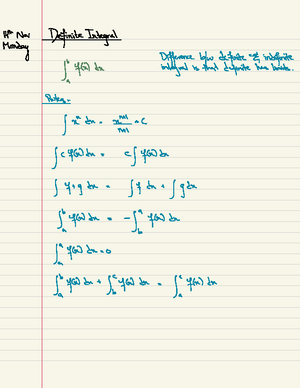 14th Nov
Monday
Definite Integral
∫_a^b f(x) dx
Difference b/w definite & indefinite
integral is that definite has limits.
Rules:-
∫ x^n dx = x^(n+1)/(n+1) + C
∫ c f(x) dx = c ∫ f(x) dx
∫ f + g dx = ∫ f dx + ∫ g dx
∫_a^b f(x) dx = -∫_b^a f(x) dx
∫_a^a f(x) dx = 0
∫_a^b f(x) dx + ∫_b^c f(x) dx = ∫_a^c f(x) dx